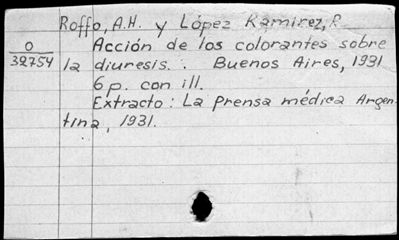 Roffo, A.H. y López Ramírez, R.
O
32754
Acción de los colorantes sobre
la diuresis. . Buenos Aires, 1931
6 p. con ill.
Extracto: La prensa médica Argen-
tina, 1931.